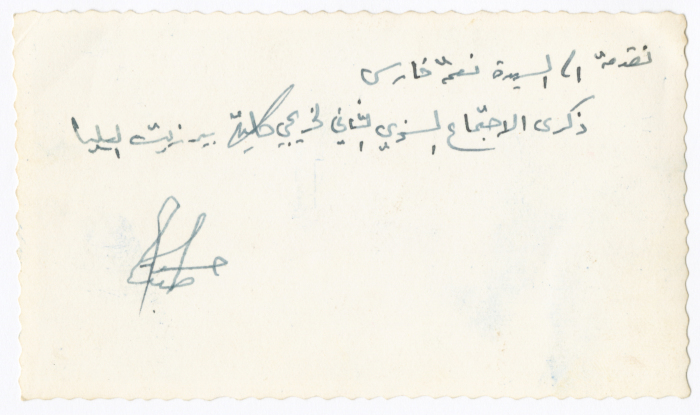 تقدمة الى السيدة نعمة فارس
ذكرى الاجتماع السنوي الثاني لخريجي كلية بير زيت العليا